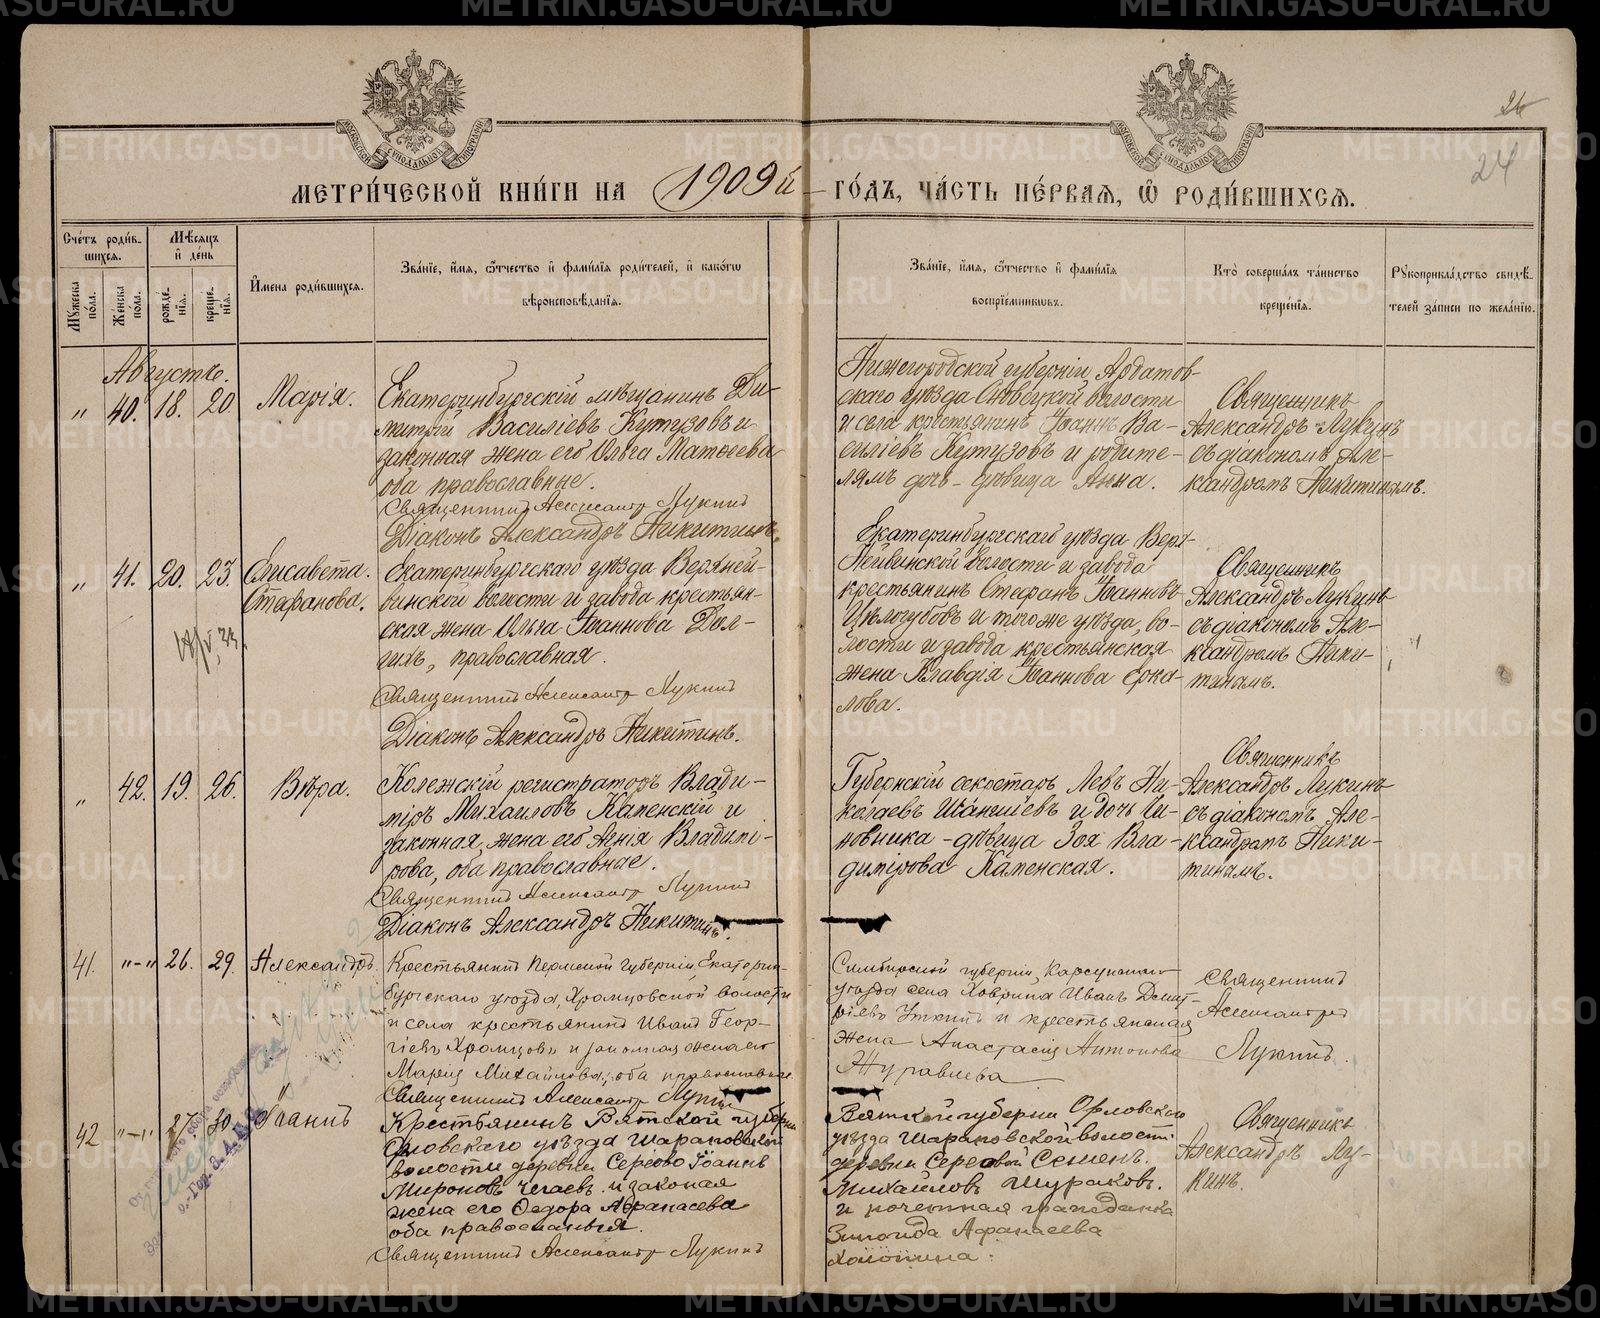 26
24
МЕТРИ́ЧЕСКОЙ КНИ́ГИ НА 1909й ГО́ДЪ, ЧА́СТЬ ПЕ́РВАѦ, Ѿ РОДИ́ВШИХСѦ.
Сче́тъ роди́вшихсѧ.
Мꙋжеска по́ла.
Же́нска пола.
Мѣ́сѧцъ и҆ де́нь
рожде́нїѧ.
креще́нїѧ.
И҆мена роди́вшихсѧ.
Зва́нїе, и҆́мѧ, ѻ҆́тчество и҆ фами́лїѧ роди́телей, и҆ како́гѡ
вѣроисповѣ́данїѧ.
Зва́нїе, и҆́мѧ, ѻ҆́тчество и҆ фами́лїѧ
воспрїе́мникѡвъ.
Кто̀ соверша́лъ та́инство
креще́нїѧ.
Рꙋкоприкла́дство свидѣ́-
телей за́писи по жела́нїю.
Августъ.
" 40. 18. 20. Марія.
Екатеринбургскій мѣщанинъ Ди-
митрій Василіевъ Кутузовъ и
законная жена его Ольга Матѳеева
оба православные.
Священникъ Александръ Лукинъ
Діаконъ Александръ Никитинъ.
Нижегородской губерніи Ардатов-
скаго уѣзда
и села крестьянинъ Іоаннъ Ва-
силіевъ Кутузовъ и родите-
лямъ дочь - дѣвица Анна.
Священникъ
Александръ Лукинъ
съ діакономъ Але-
ксандромъ Никитинымъ.
" 41. 20. 23. Елисавета.
Стефанова.
Екатеринбургскаго уѣзда Верхней-
винской волости и завода крестьян-
ская жена Ольга Іоаннова Дол-
гихъ, православная.
Священникъ Александръ Лукинъ
Діаконъ Александръ Никитинъ.
Екатеринбургскаго уѣзда Верх-
Нейвинской волости и завода
крестьянинъ Стефанъ Іоанновъ
Цѣлогубовъ и того же уѣзда, во-
лости и завода крестьянская
жена Клавдія Іоаннова Ерка-
лова.
Священникъ
Александръ Лукинъ
съ діакономъ Але-
ксандромъ Ники-
тинымъ.
" 42. 19. 26. Вѣра.
Колежскій регистраторъ Влади-
міръ Михаиловъ Каменскій и
законная жена его Ѯенія Владимі-
рова, оба православные.
Священникъ Александръ Лукинъ
Діаконъ Александръ Никитинъ.
Губернскій секретарь Левъ Ни-
колаевъ и дочь чи-
новника - дѣвица Зоя Вла-
димірова Каменская.
Священникъ
Александръ Лукинъ
съ діакономъ Але-
ксандромъ Ники-
тинымъ.
41. "-" 26. 29. Александръ.
Крестьянинъ Пермской губерніи, Екатерин-
бургскаго уѣзда, Храмцовской волости
и села крестьянинъ Иванъ Геор-
гіевъ Храмцовъ и законная жена его
Марія Михайлова, оба православные
Священникъ Александръ Лукинъ
Симбирской губерніи, Карсунскаго
уѣзда села Ховрина Иванъ Димит-
ріевъ Уткинъ и крестьянская
жена Анастасія Антонова
Журавлева
Священникъ
Александръ
Лукинъ.
42 "-" 27. 30. Іоаннъ
Крестьянинъ Вятской губерніи
Орловскаго уѣзда Шарановской
волости деревни Серѣево Іоаннъ
Мироновъ Чегаевъ и законая
жена его Ѳедора Афанасева
оба православныя.
Священникъ Александръ Лукинъ
Вятской губерни Орловскаго
уѣзда Шарановской волости
деревни Серѣевой Семенъ
Михайловъ Шураковъ.
и почетная гражданка
Зиноида Афанасева
Холопина.
Священникъ
Александръ Лу-
кинъ.
METRIKI.GASO-URAL.RU